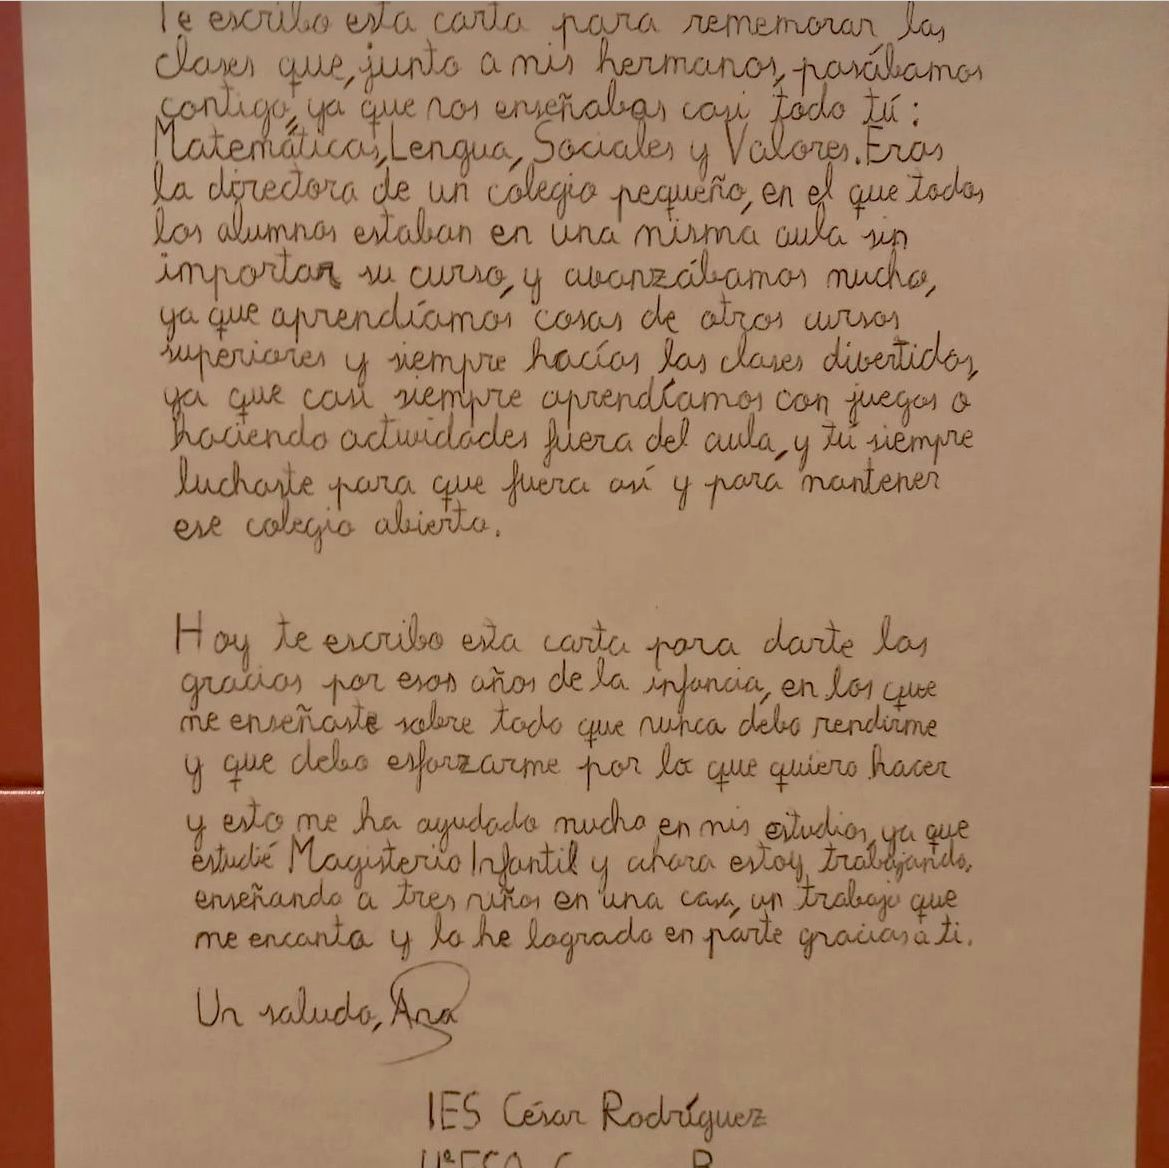 Te escribo esta carta para rememorar las
clases que, junto a mis hermanos, pasábamos
contigo, ya que nos enseñabas casi todo tú:
Matemáticas, Lengua, Sociales y Valores. Eras
la directora de un colegio pequeño, en el que todos
los alumnos estaban en una misma aula sin
importar su curso, y avanzábamos mucho,
ya que aprendíamos cosas de otros cursos
superiores y siempre hacías las clases divertidas,
ya que casi siempre aprendíamos con juegos o
haciendo actividades fuera del aula, y tú siempre
luchaste para que fuera así y para mantener
ese colegio abierto.
Hoy te escribo esta carta para darte las
gracias por esos años de la infancia, en los que
me enseñaste sobre todo que nunca debo rendirme
y que debo esforzarme por lo que quiero hacer
y esto me ha ayudado mucho en mis estudios, ya que
estudié Magisterio Infantil y ahora estoy trabajando,
enseñando a tres niños en una casa, un trabajo que
me encanta y lo he logrado en parte gracias a ti.
Un saludo, Ana
IES César Rodríguez
4º ESO B